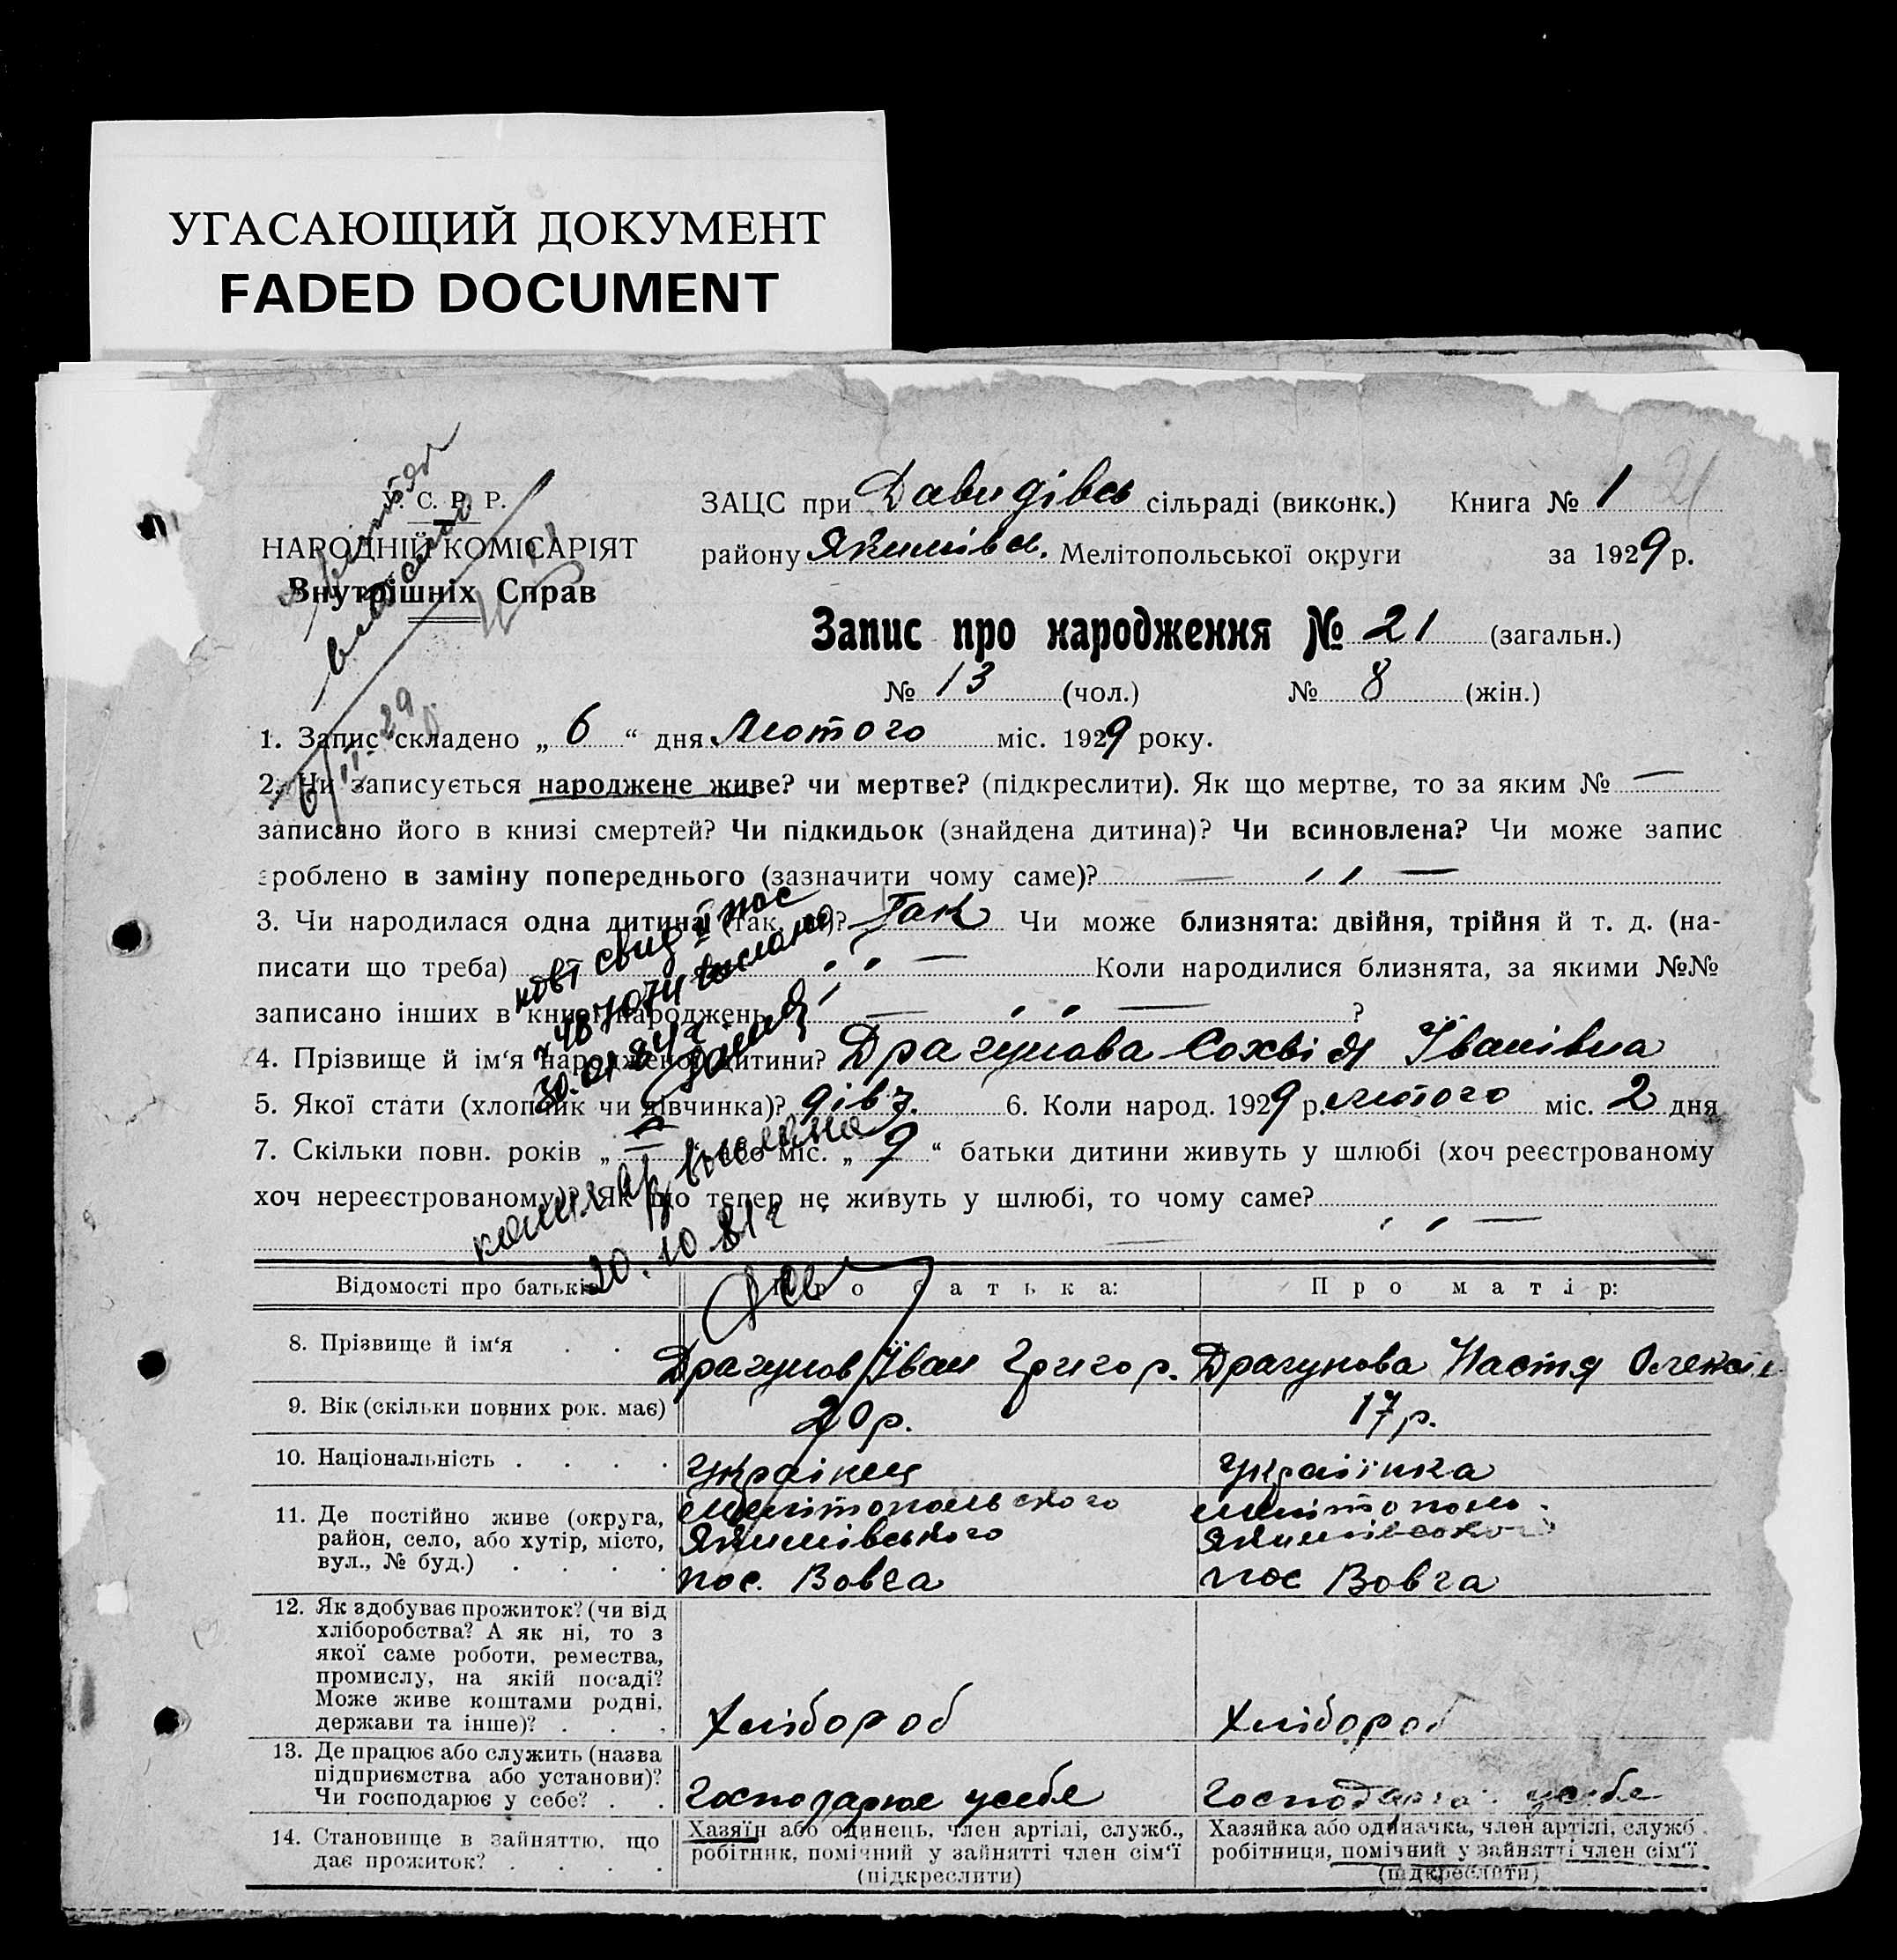 УГАСАЮЩИЙ ДОКУМЕНТ
FADED DOCUMENT
У. С. Р. Р.
НАРОДНІЙ КОМІСАРІЯТ
Внутрішніх Справ
ЗАЦС при Давидівсь сільраді (виконк.) Книга № 1 21
району Якимівсь. Мелітопольської округи за 1929 р.
Запис про народження № 21 (загальн.)
№ 13 (чол.) № 8 (жін.)
6/II-29
1. Запис складено „ 6 “ дня Лютого міс. 1929 року.
2. Чи записується народжене живе? чи мертве? (підкреслити). Як що мертве, то за яким № —
записано його в книзі смертей? Чи підкидьок (знайдена дитина)? Чи всиновлена? Чи може запис
зроблено в заміну попереднього (зазначити чому саме)? — ,, —
3. Чи народилася одна дитина (так, ні)? Так Чи може близнята: двійня, трійня й т. д. (на-
писати що треба) ,, — Коли народилися близнята, за якими №№
записано інших в книзі народжень — ,, — ?
4. Прізвище й ім‘я народженої дитини? Драгунова Сохвія Іванівна
5. Якої стати (хлопчик чи дівчинка)? дівч. 6. Коли народ. 1929 р. лютого міс. 2 дня
7. Скільки повн. років „ “ або міс. „ 9 “ батьки дитини живуть у шлюбі (хоч реєстрованому
хоч нереєстрованому)? Як що тепер не живуть у шлюбі, то чому саме?
— ,, —
20.10.81 г
Відомості про батьків Про батька: Про матір:
8. Прізвище й ім‘я . . Драгунов Іван Григор. Драгунова Настя Олексі
9. Вік (скільки повних рок. має) 20 р. 17 р.
10. Національність . . . . Українець Українка
11. Де постійно живе (округа, район, село, або хутір, місто, вул., № буд.) . . . .
Мелітопольського
Якимівського
пос. Вовча
Мелітополь.
Якимівського
пос Вовча
12. Як здобуває прожиток? (чи від
хліборобства? А як ні, то з
якої саме роботи, ремества,
промислу, на якій посаді?
Може живе коштами родні,
держави та інше)? . . . Хлібороб Хлібороб
13. Де працює або служить (назва
підприємства або установи)?
Чи господарює у себе? . . Господарює усебе Господарює усебе
14. Становище в зайняттю, що
дає прожиток? . . . .
Хазяїн або одинець, член артілі, служб.,
робітник, помічний у зайнятті член сім‘ї
(підкреслити)
Хазяйка або одиначка, член артілі, служб.
робітниця, помічний у зайнятті член сім‘ї
(підкреслити)